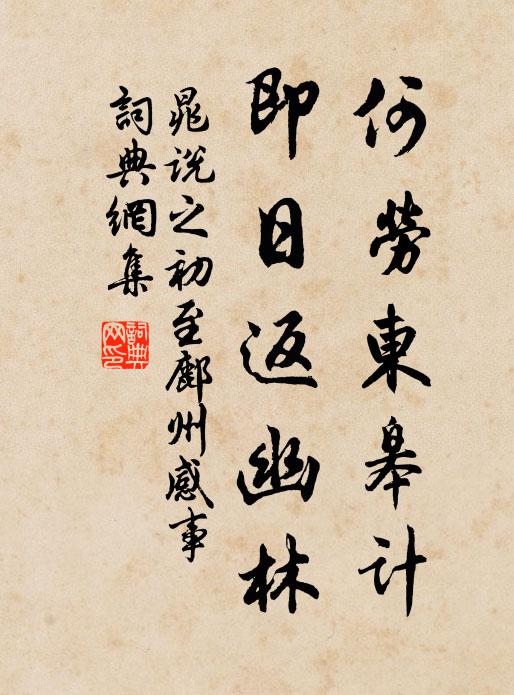 何勞東皋計
即日返幽林
晁說之初至鄜州感事
詞典網集
詞典網印